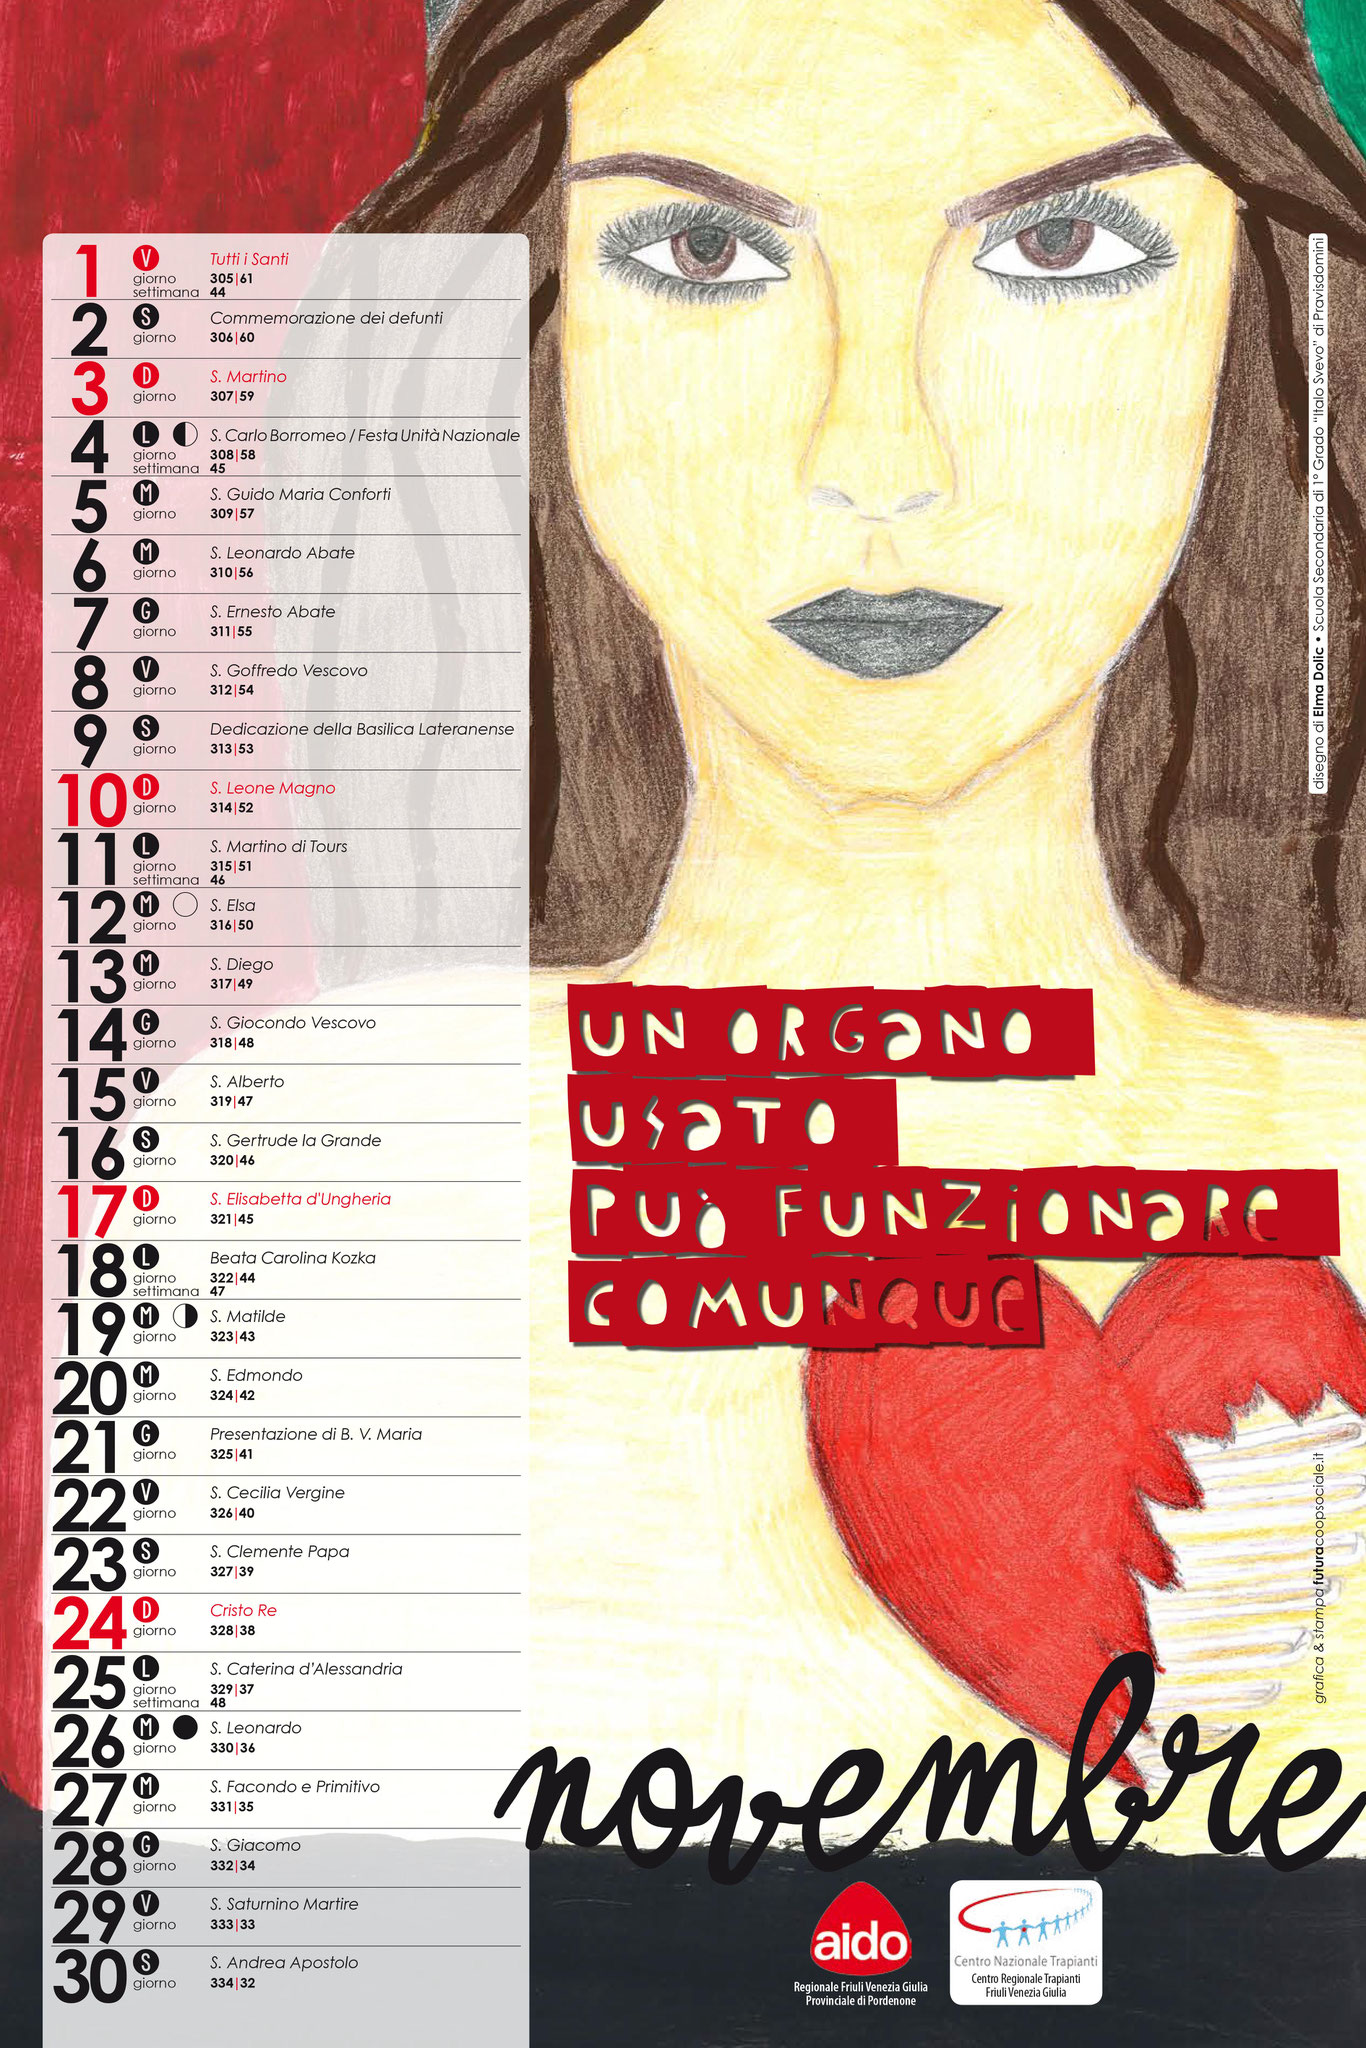 1 V Tutti i Santi
giorno 305|61
settimana 44
2 S Commemorazione dei defunti
giorno 306|60
3 D S. Martino
giorno 307|59
4 L S. Carlo Borromeo / Festa Unità Nazionale
giorno 308|58
settimana 45
5 M S. Guido Maria Conforti
giorno 309|57
6 M S. Leonardo Abate
giorno 310|56
7 G S. Ernesto Abate
giorno 311|55
8 V S. Goffredo Vescovo
giorno 312|54
9 S Dedicazione della Basilica Lateranense
giorno 313|53
10 D S. Leone Magno
giorno 314|52
11 L S. Martino di Tours
giorno 315|51
settimana 46
12 M S. Elsa
giorno 316|50
13 M S. Diego
giorno 317|49
14 G S. Giocondo Vescovo
giorno 318|48
15 V S. Alberto
giorno 319|47
16 S S. Gertrude la Grande
giorno 320|46
17 D S. Elisabetta d'Ungheria
giorno 321|45
18 L Beata Carolina Kozka
giorno 322|44
settimana 47
19 M S. Matilde
giorno 323|43
20 M S. Edmondo
giorno 324|42
21 G Presentazione di B. V. Maria
giorno 325|41
22 V S. Cecilia Vergine
giorno 326|40
23 S S. Clemente Papa
giorno 327|39
24 D Cristo Re
giorno 328|38
25 L S. Caterina d'Alessandria
giorno 329|37
settimana 48
26 M S. Leonardo
giorno 330|36
27 M S. Facondo e Primitivo
giorno 331|35
28 G S. Giacomo
giorno 332|34
29 V S. Saturnino Martire
giorno 333|33
30 S S. Andrea Apostolo
giorno 334|32
disegno di Elma Dolic • Scuola Secondaria di 1° Grado "Italo Svevo" di Pravisdomini
UN ORGANO
USATO
PUÒ FUNZIONARE
COMUNQUE
grafica & stampa futuracoopsociale.it
novembre
aido
Regionale Friuli Venezia Giulia
Provinciale di Pordenone
Centro Nazionale Trapianti
Centro Regionale Trapianti
Friuli Venezia Giulia